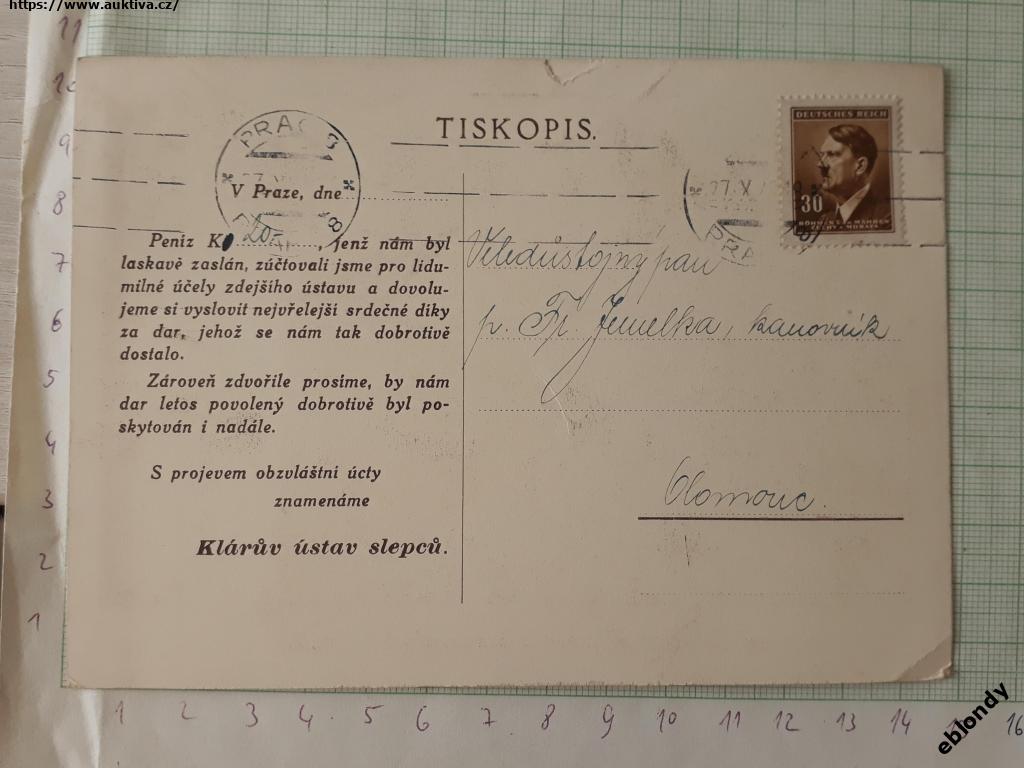 https://www.auktiva.cz/
TISKOPIS.
DEUTSCHES REICH
30
BÖHMEN u. MÄHREN
ČECHY a MORAVA
27. X
PRA
8
V Praze, dne
Peníz K 20-, jenž nám byl
laskavě zaslán, zúčtovali jsme pro lidu-
milné účely zdejšího ústavu a dovolu-
jeme si vyslovit nejvřelejší srdečné díky
za dar, jehož se nám tak dobrotivě
dostalo.
Zároveň zdvořile prosíme, by nám
dar letos povolený dobrotivě byl po-
skytován i nadále.
S projevem obzvláštní úcty
znamenáme
Klárův ústav slepců.
Veledůstojný pan
p. Fr. Jemelka, kanovník
Olomouc.
11
10
9
8
7
6
5
4
3
2
1
1 2 3 4 5 6 7 8 9 10 11 12 13 14 16
eblondy